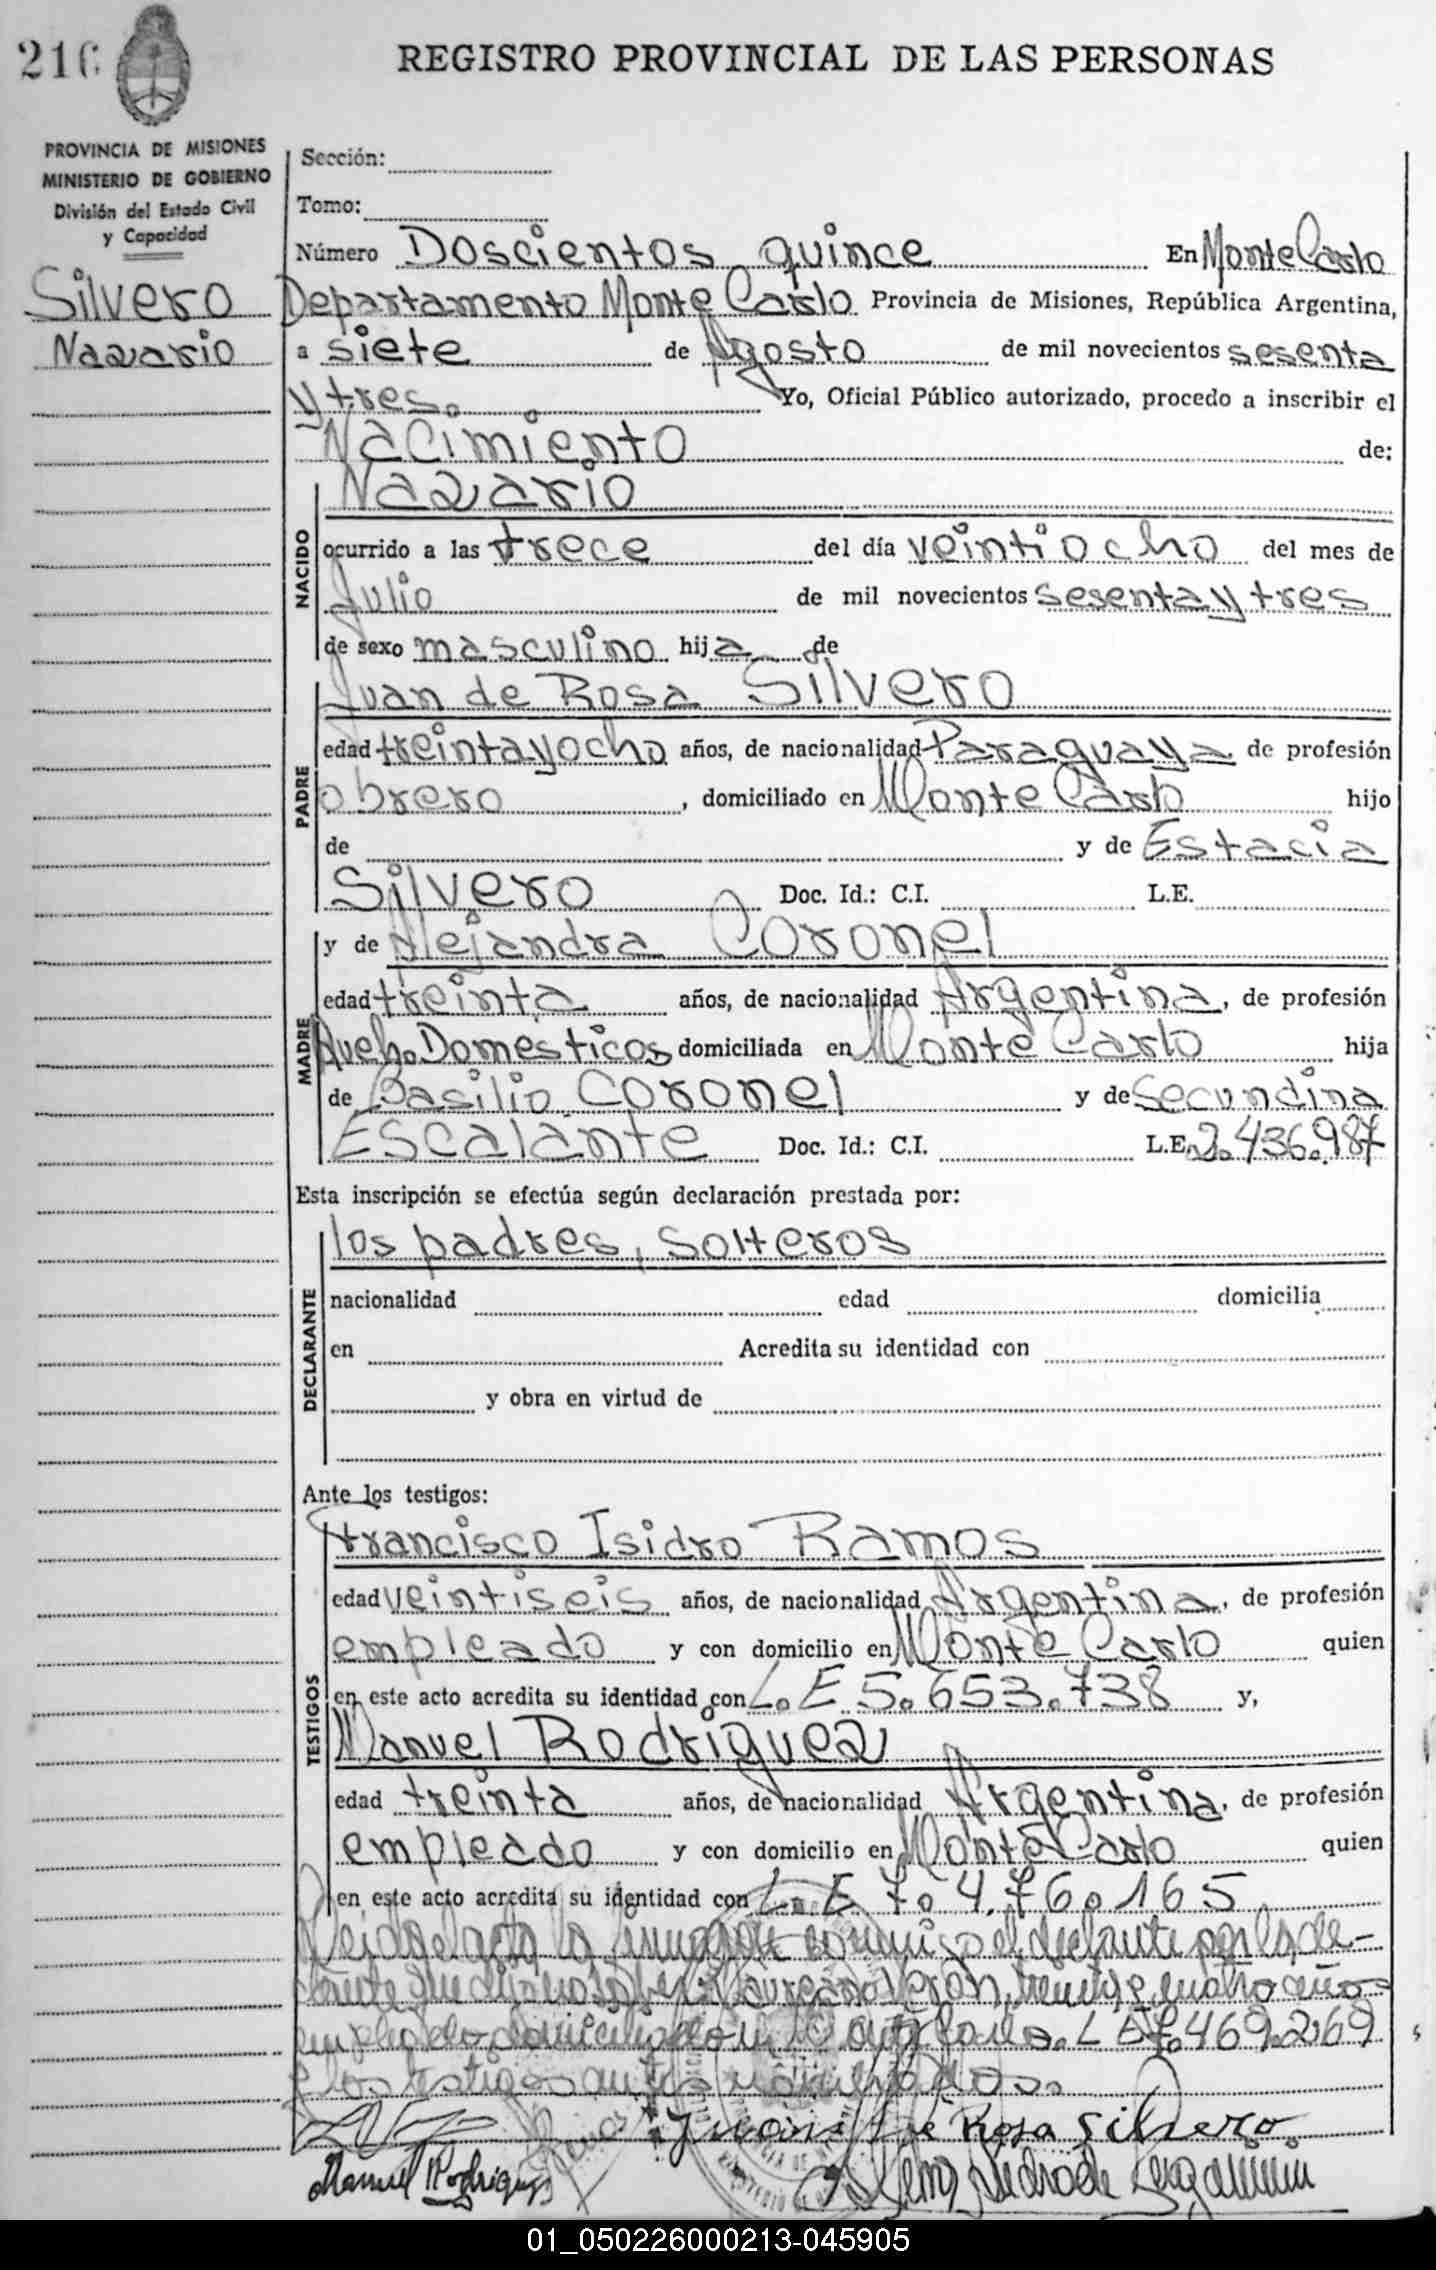 216
REGISTRO PROVINCIAL DE LAS PERSONAS
PROVINCIA DE MISIONES
MINISTERIO DE GOBIERNO
División del Estado Civil
y Capacidad
Silvero
Nazario
Sección:
Tomo:
Número Doscientos quince En Monte Carlo
Departamento Monte Carlo Provincia de Misiones, República Argentina,
a siete de Agosto de mil novecientos sesenta
y tres. Yo, Oficial Público autorizado, procedo a inscribir el
Nacimiento de:
NACIDO
Nazario
ocurrido a las trece del día veintiocho del mes de
Julio de mil novecientos sesenta y tres
de sexo masculino hija de
PADRE
Juan de Rosa Silvero
edad treinta y ocho años, de nacionalidad Paraguaya de profesión
obrero, domiciliado en Monte Carlo hijo
de y de Estacia
Silvero Doc. Id.: C.I. L.E.
MADRE
y de Alejandra Coronel
edad treinta años, de nacionalidad Argentina, de profesión
Queh. Domésticos domiciliada en Monte Carlo hija
de Basilio Coronel y de Secundina
Escalante Doc. Id.: C.I. L.E. 2.436.987
Esta inscripción se efectúa según declaración prestada por:
DECLARANTE
los padres, solteros
nacionalidad edad domicilia
en Acredita su identidad con
y obra en virtud de
Ante los testigos:
TESTIGOS
Francisco Isidro Ramos
edad veintiseis años, de nacionalidad Argentina, de profesión
empleado y con domicilio en Monte Carlo quien
en este acto acredita su identidad con L. E 5.653.738 y,
Manuel Rodriguez
edad treinta años, de nacionalidad Argentina, de profesión
empleado y con domicilio en Monte Carlo quien
en este acto acredita su identidad con L. E 7.476.165
Leida el acta la conmigo el declarante por la de-
treinta y cuatro años
empleado domiciliado en Monte Carlo. L E 7.469.269
y los testigos antes mencionados.
Juan de Rosa Silvero
Manuel Rodriguez
01_050226000213-045905